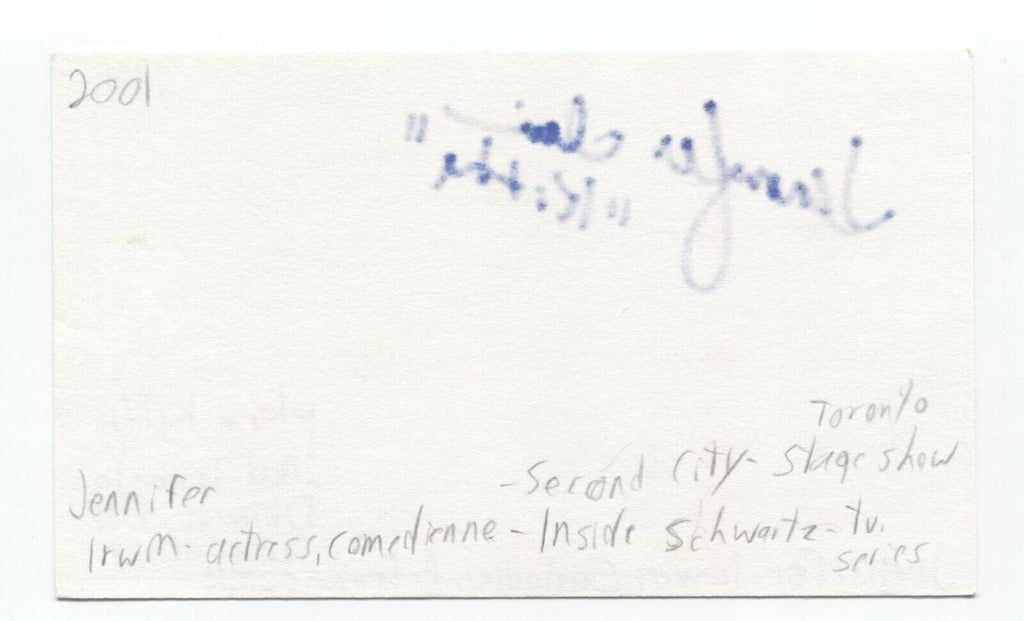 2001
Jennifer
"Kitty"
Toronto
Jennifer - Second City - Stage show
Irwin - actress, comedienne - Inside Schwartz - tv.
series